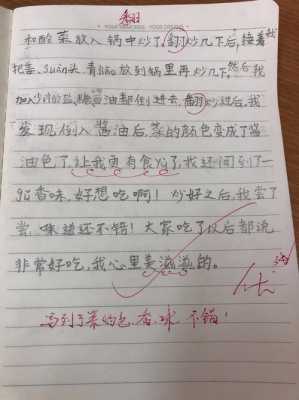 翻
和酸菜放入锅中炒了,翻炒几下后,接着我
把姜、suàn头、青椒放到锅里再炒几下,然后我
加入少许的盐,酱油都倒进去,翻炒过后,我
发现倒入酱油后,菜的颜色变成了酱
油色了,让我更有食欲了,我还闻到了一
股香味,好想吃啊!炒好之后,我尝了
尝,味道还不错!大家吃了以后都说
非常好吃,我心里美滋滋的。
优
写到了菜的色、香、味,不错!